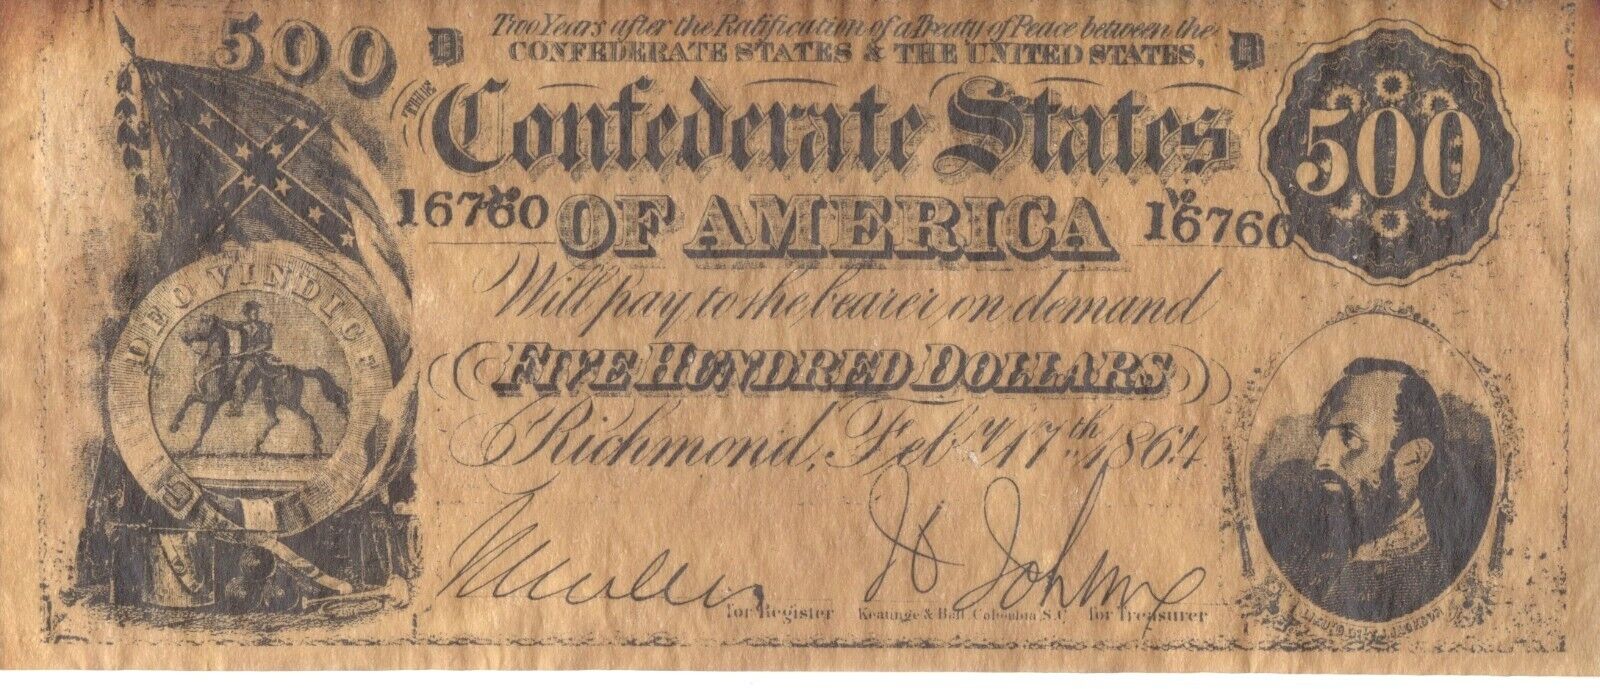 500
D
Two Years after the Ratification of a Treaty of Peace between the
CONFEDERATE STATES & THE UNITED STATES,
D
500
THE
Confederate States
16760
OF AMERICA
No
16760
Will pay to the bearer on demand
FIVE HUNDRED DOLLARS
Richmond, Feby 17th 1864
DEO VINDICE
for Register
Keatinge & Ball, Columbia S.C.
for Treasurer